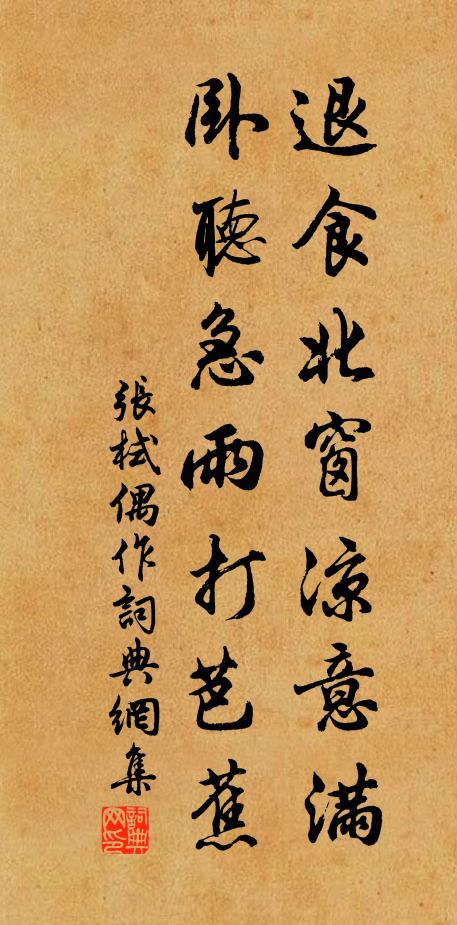 退食北窗凉意满
卧聽急雨打芭蕉
張栻偶作詞典網集
詞典网印